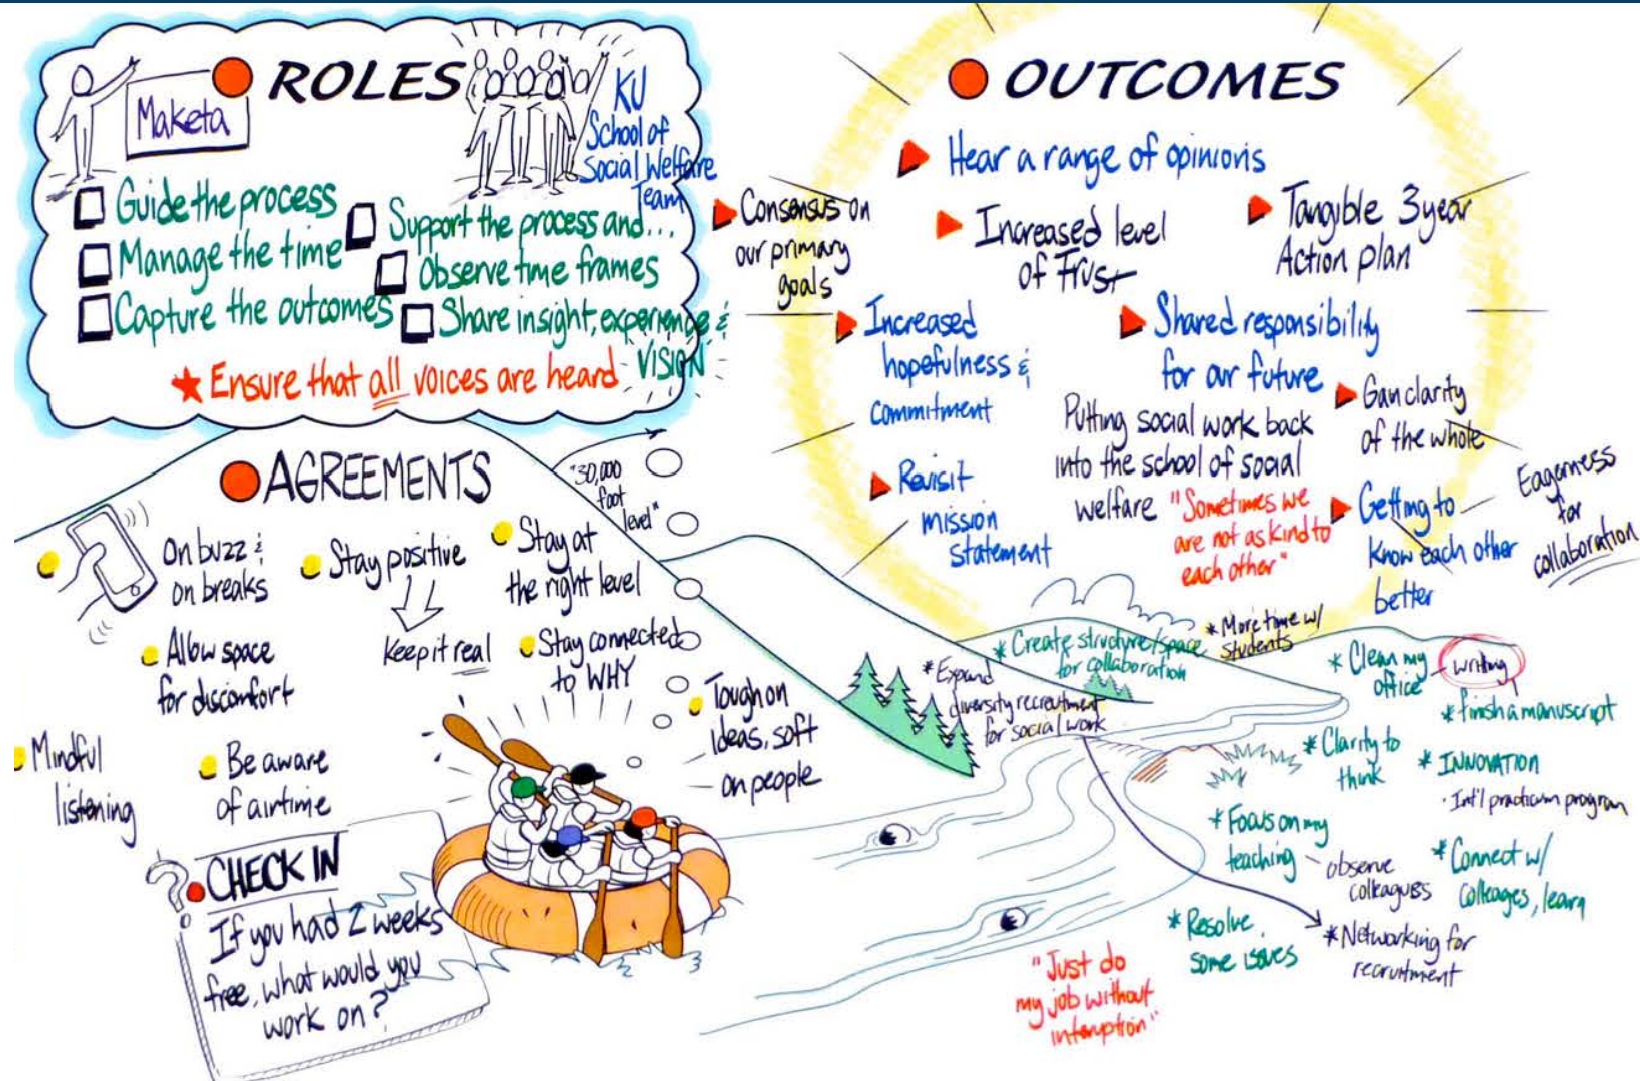 ROLES
Maketa
Guide the process
Manage the time
Capture the outcomes
KU
School of
Social Welfare
Team
Support the process and...
Observe time frames
Share insight, experience &
VISION
Ensure that all voices are heard
OUTCOMES
Hear a range of opinions
Consensus on
our primary
goals
Increased level
of Trust
Tangible 3 year
Action plan
Increased
hopefulness &
commitment
Shared responsibility
for our future
Putting social work back
into the school of social
welfare
"Sometimes we
are not as kind to
each other"
Gan clarity
of the whole
Revisit
mission
statement
Getting to
know each other
better
Eagerness
for
collaboration
AGREEMENTS
"30,000
foot
level"
On buzz &
on breaks
Stay positive
Keep it real
Stay at
the right level
Allow space
for discomfort
Stay connected
to WHY
Mindful
listening
Be aware
of airtime
Tough on
ideas, soft
on people
CHECK IN
?
If you had 2 weeks
free, what would you
work on?
* Expand
diversity recruitment
for social work
* Create structure/space
for collaboration
* More time w/
students
* Clean my
office
writing
* finish a manuscript
* Clarity to
think
* INNOVATION
· Int'l practicum program
* Focus on my
teaching
- observe
colleagues
* Connect w/
colleages, learn
* Resolve
some issues
* Networking for
recruitment
"Just do
my job without
interuption"